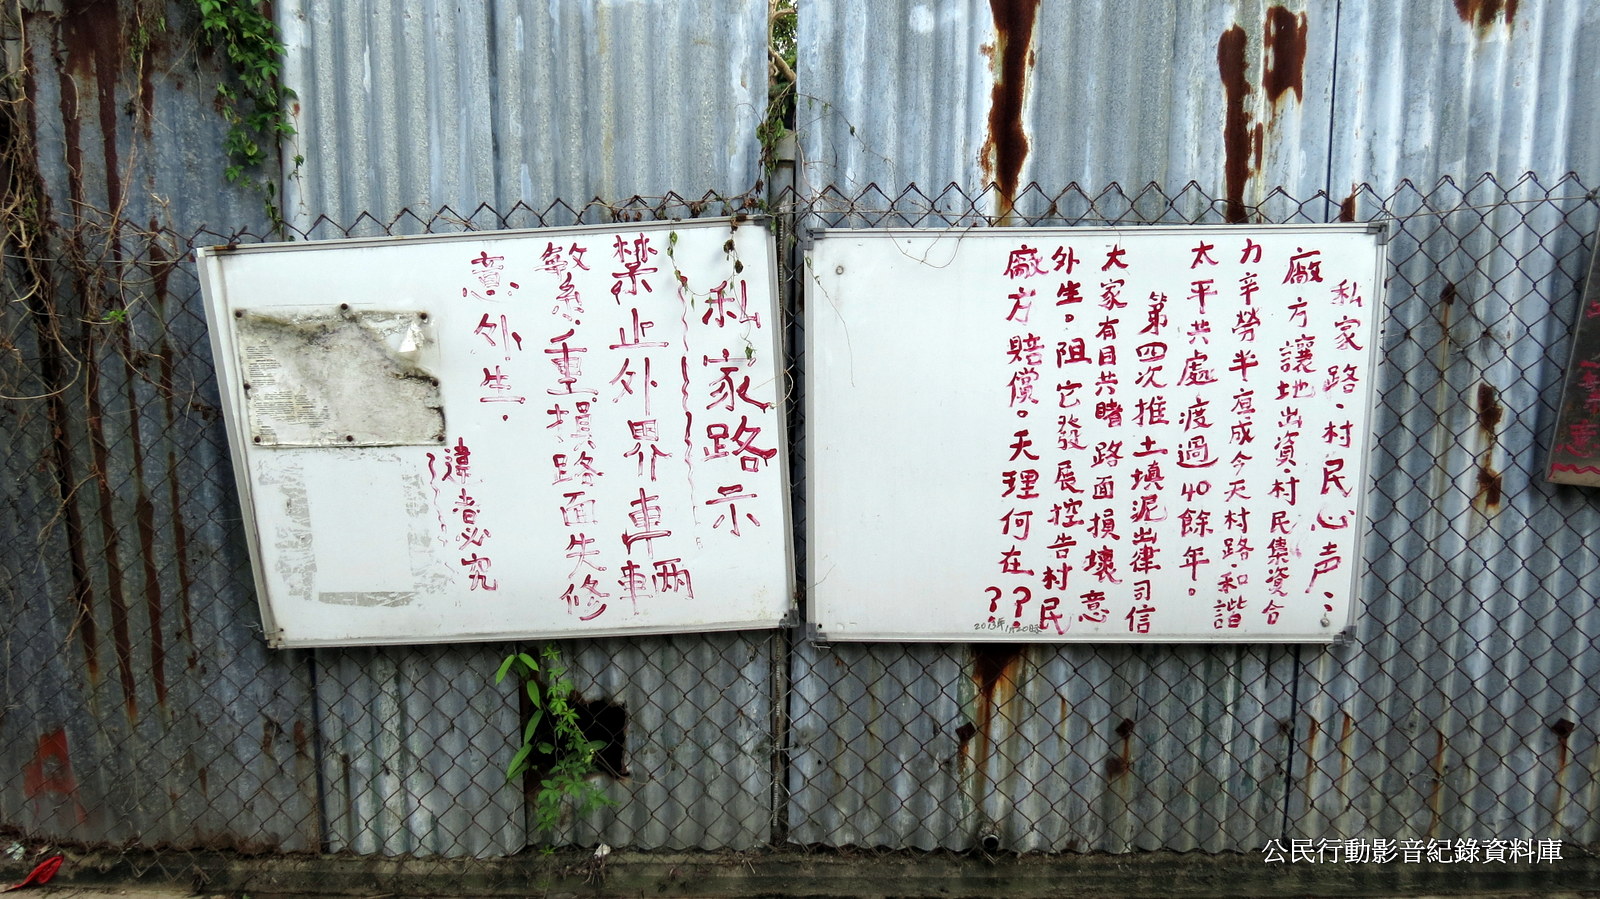 私家路．村民心声：
廠方讓地出資．村民集資合
力辛勞半
成今天村路．和諧
太平共處渡過40餘年。
第四次推土填泥出律司信
大家有目共睹路面損壞意
外生。阻它發展控告村民
廠方賠償。天理何在??
?
私家路示
禁止外界車輛
繁多重損路面失修
意外生．
違者必究
公民行動影音紀錄資料庫